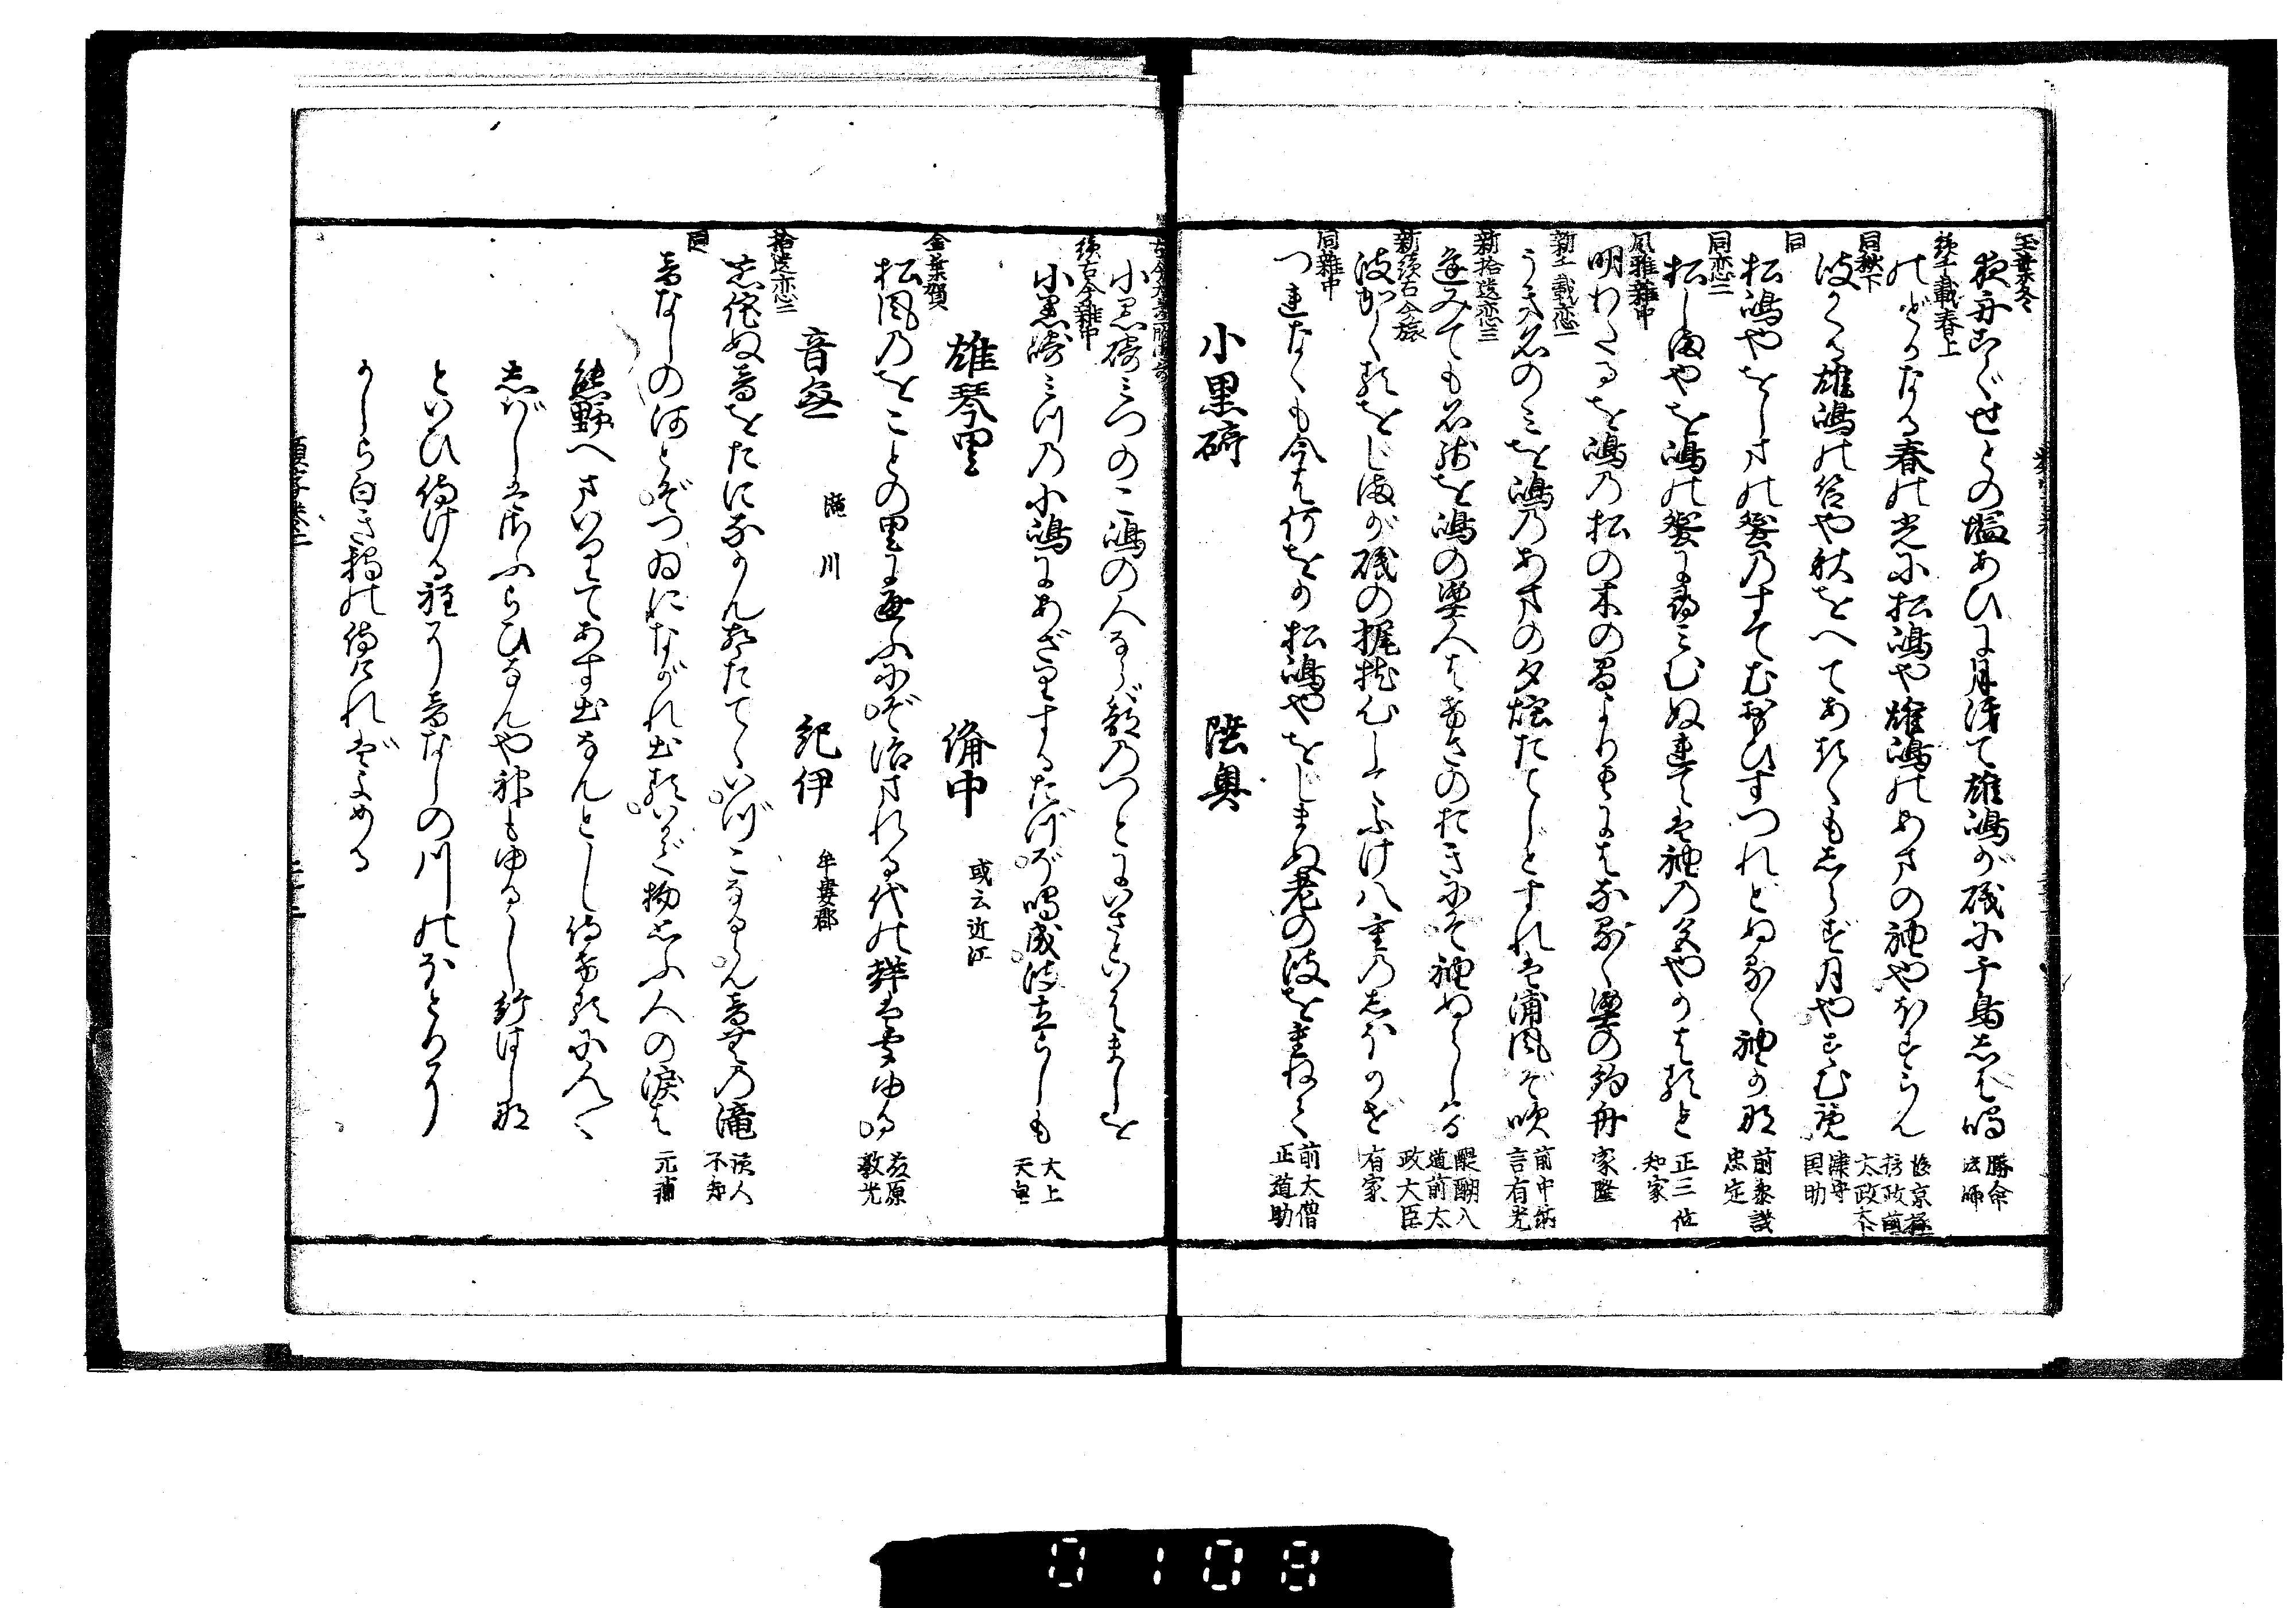 玉葉冬
夜舟こぐせとの塩あひに月浅て雄嶋が磯に千鳥しば鳴 勝命法師
続千載春上
のどかなる春の光に松嶋や雄嶋のあまの袖やほすらん 後京極摂政前太政大臣
同秋下
波かくる雄嶋の苫や秋をへてあるじもしらず月やすむ覧 津守国助
同
松嶋やをしまの蜑のすてむおもひすつれどぬるゝ袖かな 前参議忠定
同恋二
松しまやを嶋の蜑に尋みむぬれては袖の色やかはると 正三位知家
風雅雑中
明わたるを嶋の松の木の間より雲にはなるゝ蜑の釣舟 家隆
新千載恋一
うき名のみを嶋のあまの夕煙たてじとすれば浦風ぞ吹 前中納言有光
新拾遺恋三
逢みても名残を嶋の蜑人はけさのおきにぞ袖ぬらしける 醍醐入道前太政大臣
新続古今旅
波かくるをじまが磯の梶枕心してふけ八重のしほかぜ 有家
同雑中
つれなくも今は何をか松嶋やをじまぬ老の波を重ねて 前大僧正道助
小黒碕 陸奥
小黒碕みつのこ嶋の人ならば都のつとにいざといはましを
続古今雑中
小黒崎みつの小嶋にあさりするたづぞ鳴成波立らしも 大上天皇
雄琴里 備中 或云近江
金葉賀
松風のをことの里に通ふにぞ治まれる代の声は聞ゆる 藤原敦光
音無 滝 川 紀伊 牟婁郡
拾遺恋二
恋侘ぬ音をたになかん声たてゝいづこなるらん音無の滝 読人不知
同
音なしの河とぞつゐにながれ出るいはで物思ふ人の涙は 元輔
熊野へまいりてあす出なんとし侍けるに人々
しばしはさふらひなんや神もゆるし給はじな
といひ侍ける程に音なしの川のほとりに
かしら白き鴉の侍ければよめる